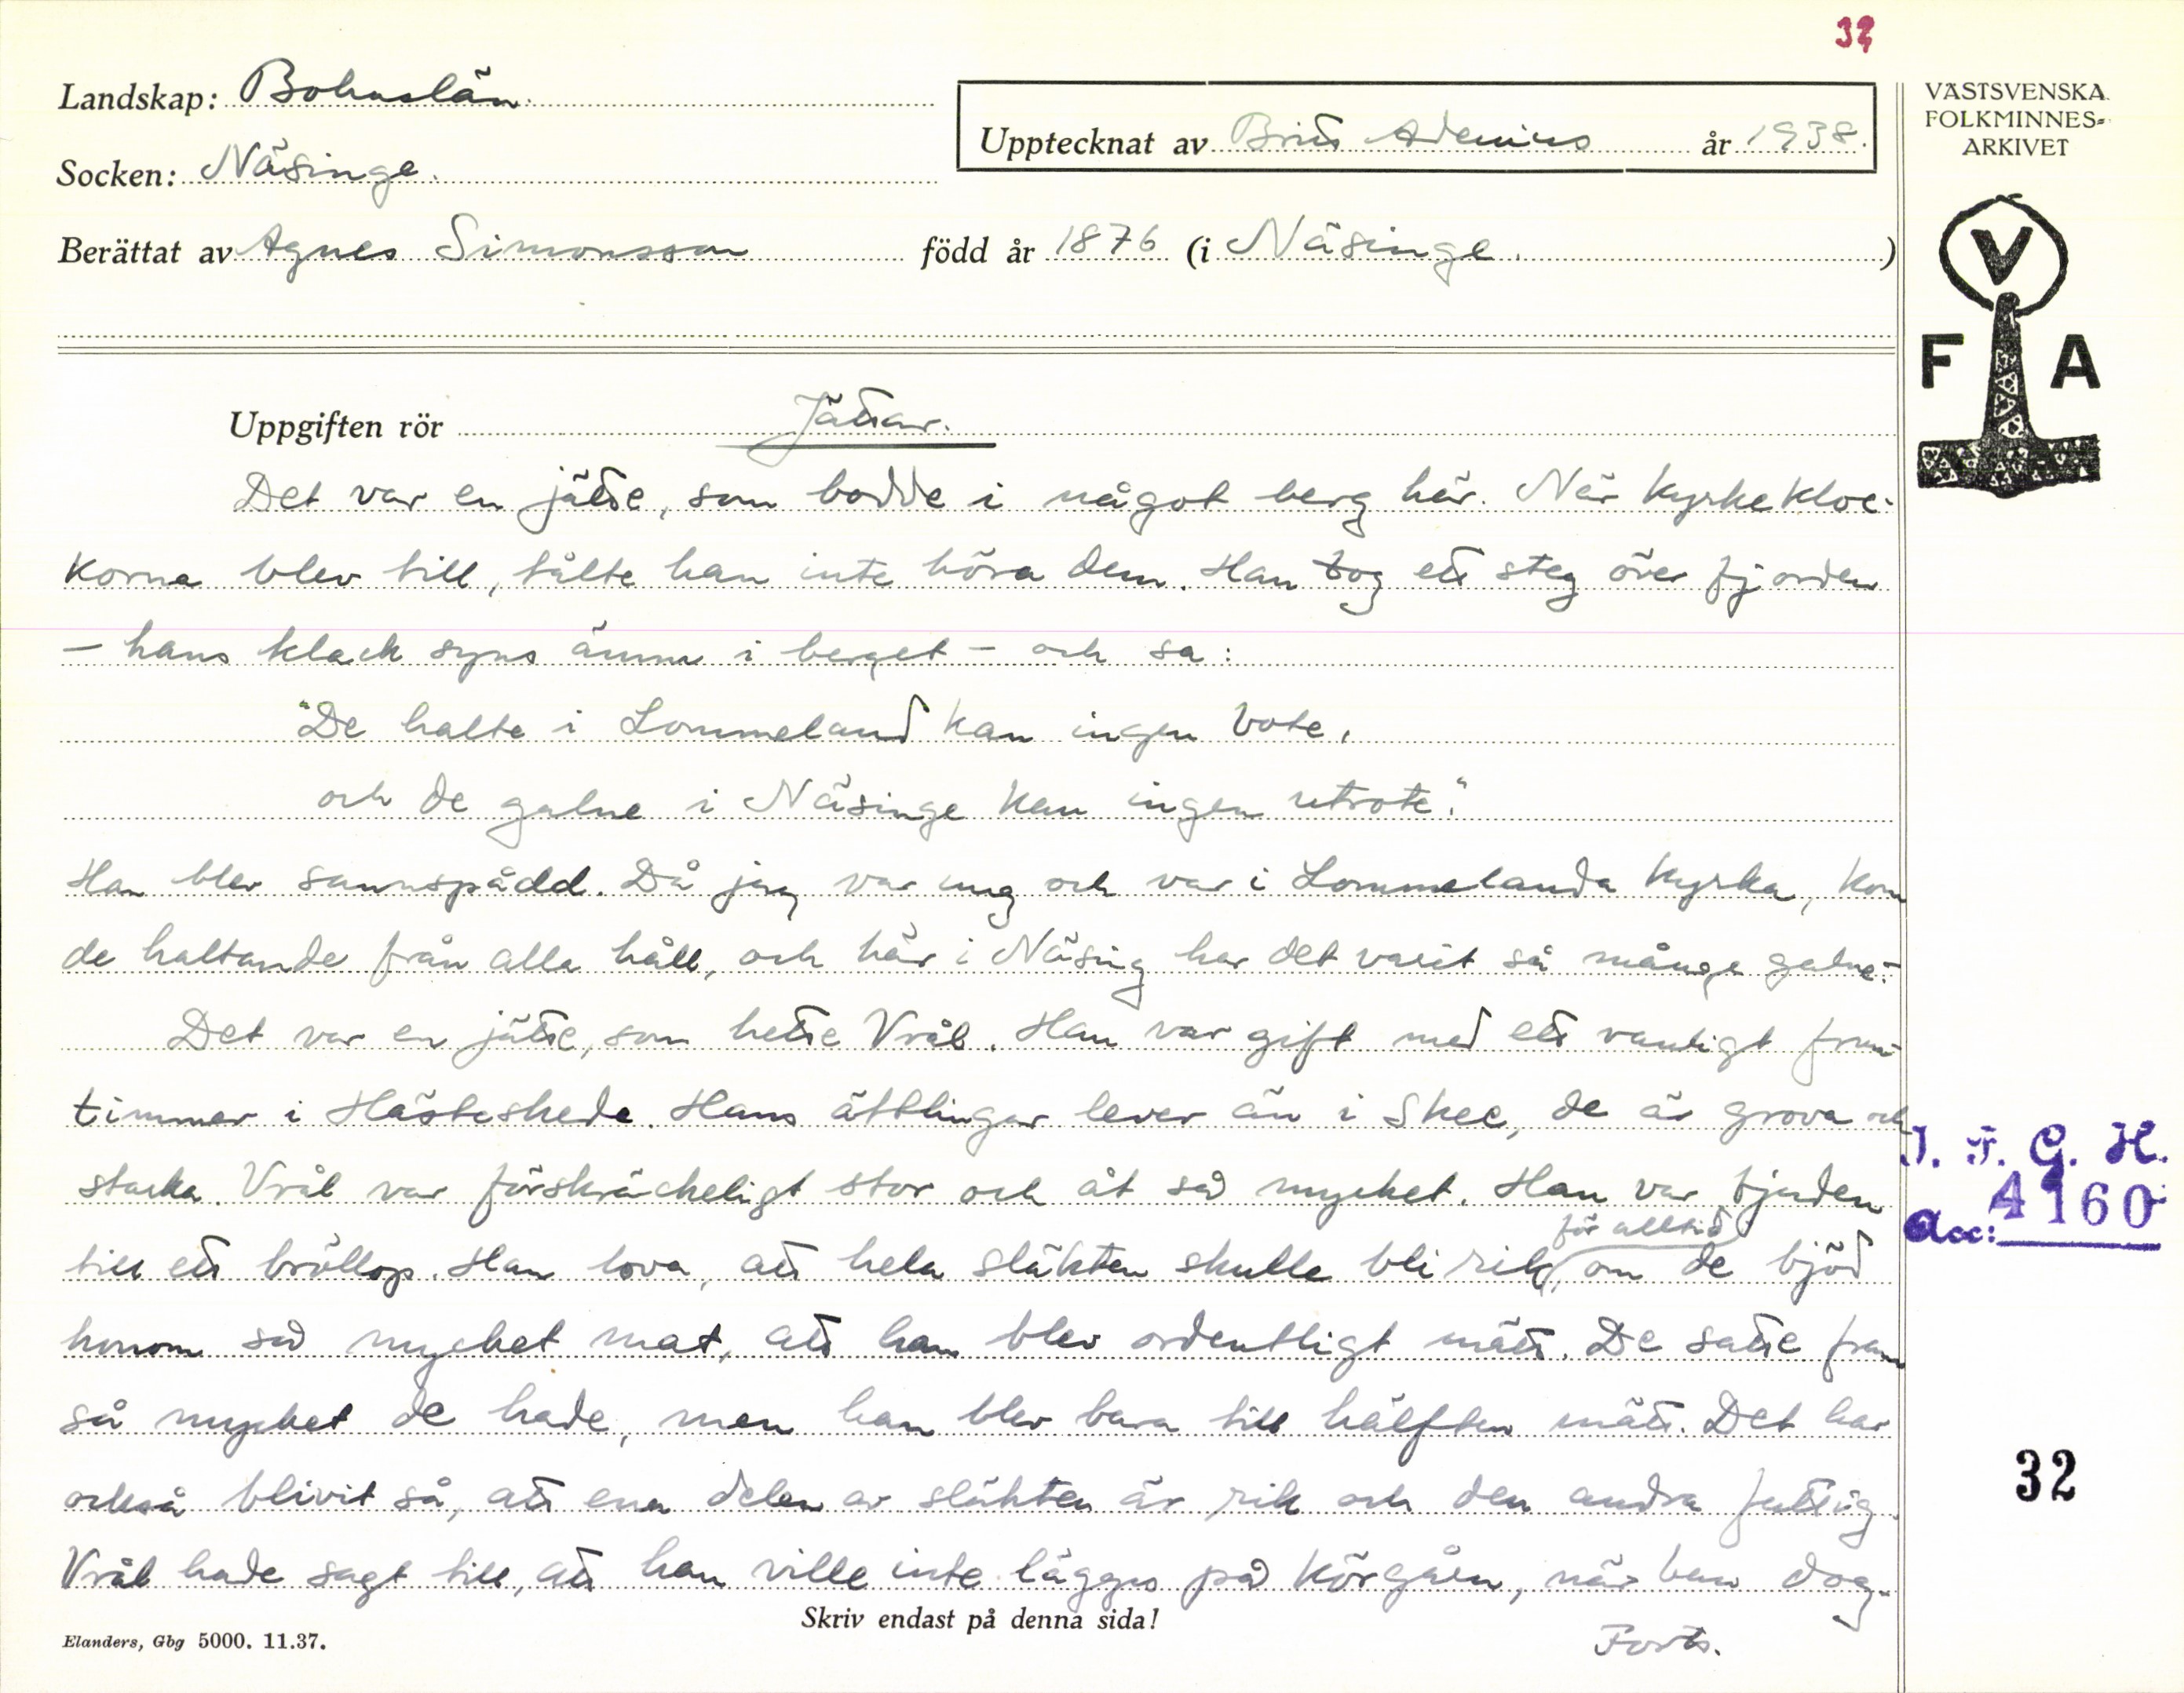 32
Landskap: Bohuslän.
Upptecknat av Britt Adenius år 1938.
VÄSTSVENSKA
FOLKMINNES-
ARKIVET
Socken: Näsinge.
Berättat av Agnes Simonsson född år 1876 (i Näsinge.)
V
F A
Uppgiften rör Jättar.
Det var en jätte, som bodde i något berg här. När kyrkekloc-
korna blev till, tålte han inte höra dem. Han tog ett steg över fjorden
– hans klack syns ännu i berget – och sa:
"De halte i Lommeland kan ingen bote,
och de galne i Näsinge kan ingen utrote."
Han blev sannspådd. Då jag var ung och var i Lommelanda kyrka, kom
de haltande från alla håll, och här i Näsing har det varit så många galne.-
Det var en jätte, som hette Vrål. Han var gift med ett vanligt frun-
timmer i Hästeskede. Hans ättlingar lever än i Skee, de är grova och
starka. Vrål var förskräckeligt stor och åt så mycket. Han var bjuden
för alltid
till ett bröllop. Han lova, att hela släkten skulle bli rik, om de bjöd
honom så mycket mat, att han blev ordentligt mätt. De satte fram
så mycket de hade, men han blev bara till hälften mätt. Det har
också blivit så, att ena delen av släkten är rik och den andra fattig.
Vrål hade sagt till, att han ville inte läggas på körgåen, när han dog.
Skriv endast på denna sida!
Forts.
Elanders, Gbg 5000. 11.37.
I. F. G. H.
Acc: 4160
32